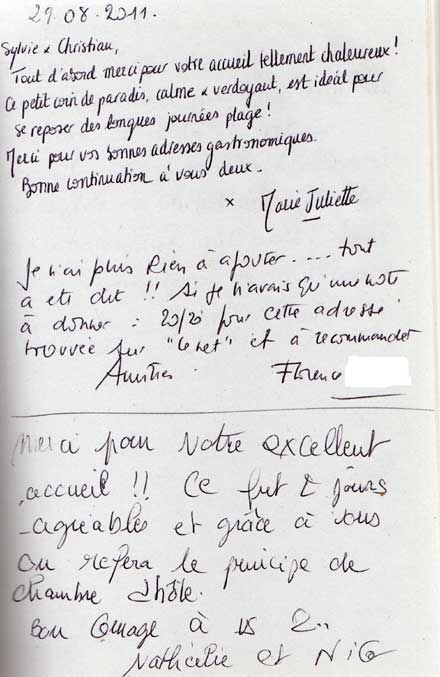 29.08.2011.
Sylvie & Christian,
Tout d'abord merci pour votre accueil tellement chaleureux !
Ce petit coin de paradis, calme & verdoyant, est idéal pour
se reposer des longues journées plage !
Merci pour vos bonnes adresses gastronomiques.
Bonne continuation à vous deux.
x Marie Juliette
Je n'ai plus Rien à ajouter .... tout
a ete dit !! si je n'avais qu'une note
à donner : 20/20 pour cette adresse
trouvée sur "le net" et à recommander
Amitiés Florence
Merci pour Notre excellent
accueil !! Ce fut 2 jours
agréables et grâce à vous
on refera le principe de
chambre d'hôte.
Bon Courage à vs 2..
Nathalie et Nico